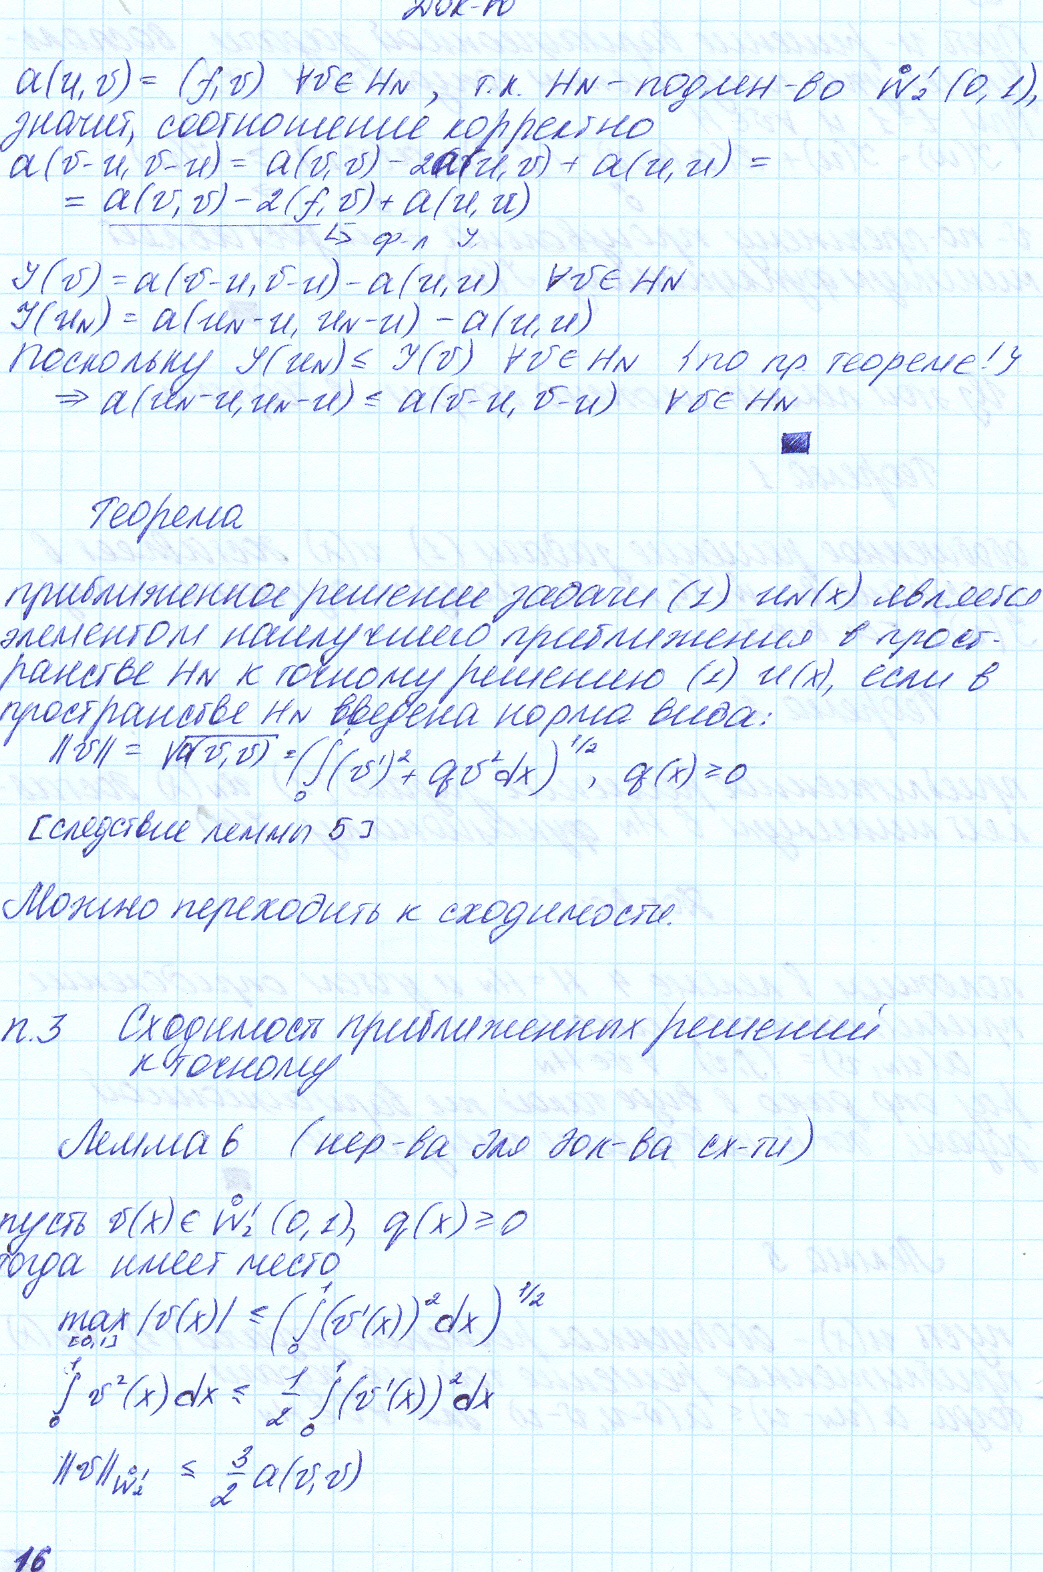 Док-во
a(u,v) = (f,v) ∀v∈H_N, т.к. H_N – подмн-во W̊₂¹(0,1),
значит, соотношение корректно
a(v-u, v-u) = a(v,v) - 2a(u,v) + a(u,u) =
= a(v,v) - 2(f,v) + a(u,u)
↳ ф-л J.
J(v) = a(v-u, v-u) - a(u,u) ∀v∈H_N
J(u_N) = a(u_N-u, u_N-u) - a(u,u)
Поскольку J(u_N) ≤ J(v) ∀v∈H_N {по пр. теореме!}
⇒ a(u_N-u, u_N-u) ≤ a(v-u, v-u) ∀v∈H_N
Теорема
приближенное решение задачи (1) u_N(x) является
элементом наилучшего приближения в прост-
ранстве H_N к точному решению (1) u(x), если в
пространстве H_N введена норма вида:
||v|| = √a(v,v) = (∫₀¹ (v')² + qv² dx)^{1/2}, q(x) ≥ 0
[следствие леммы 5]
Можно переходить к сходимости.
п.3 Сходимость приближенных решений
к точному
Лемма 6 (нер-ва для док-ва сх-ти)
пусть v(x) ∈ W̊₂¹(0,1), q(x) ≥ 0
тогда имеет место
max_{[0,1]} |v(x)| ≤ (∫₀¹ (v'(x))² dx)^{1/2}
∫₀¹ v²(x) dx ≤ 1/2 ∫₀¹ (v'(x))² dx
||v||_{W̊₂¹} ≤ 3/2 a(v,v)
16